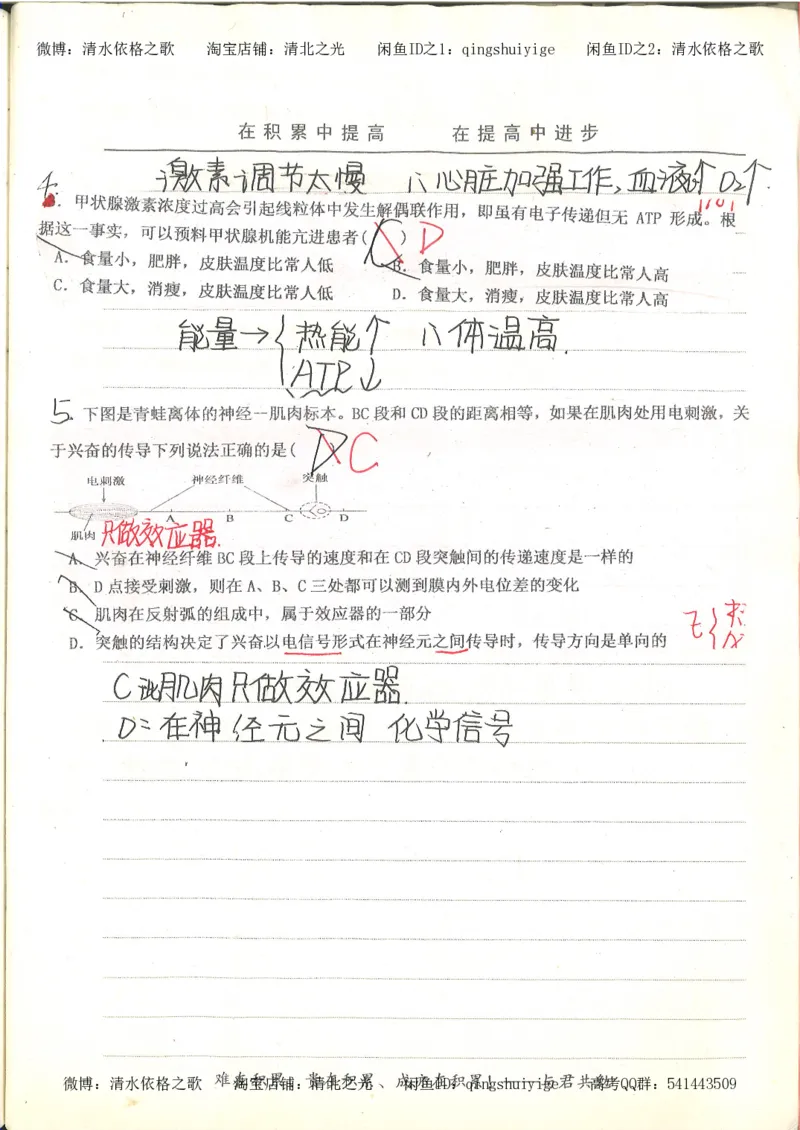 微博：清水依格之歌 淘宝店铺：清北之光 闲鱼ID之1：qingshuiyige 闲鱼ID之2：清水依格之歌
在积累中提高 在提高中进步
激素调节太慢 ∴心脏加强工作，血液的↑O₂↑.
4. 甲状腺激素浓度过高会引起线粒体中发生解偶联作用，即虽有电子传递但无 ATP 形成。根
据这一事实，可以预料甲状腺机能亢进患者( C ) D
A．食量小，肥胖，皮肤温度比常人低 B．食量小，肥胖，皮肤温度比常人高
C．食量大，消瘦，皮肤温度比常人低 D．食量大，消瘦，皮肤温度比常人高
能量→{热能↑ ∴体温高.
ATP↓
5. 下图是青蛙离体的神经--肌肉标本。BC段和CD段的距离相等，如果在肌肉处用电刺激，关
于兴奋的传导下列说法正确的是( D ) C
电刺激 神经纤维 突触
A B C D
肌肉 只做效应器.
A．兴奋在神经纤维BC段上传导的速度和在CD段突触间的传递速度是一样的
B．D点接受刺激，则在A、B、C三处都可以测到膜内外电位差的变化
C．肌肉在反射弧的组成中，属于效应器的一部分
D．突触的结构决定了兴奋以电信号形式在神经元之间传导时，传导方向是单向的
C 此肌肉只做效应器.
D：在神经元之间 化学信号
微博：清水依格之歌 淘宝店铺：清北之光 闲鱼ID之1：qingshuiyige 高考QQ群：541443509